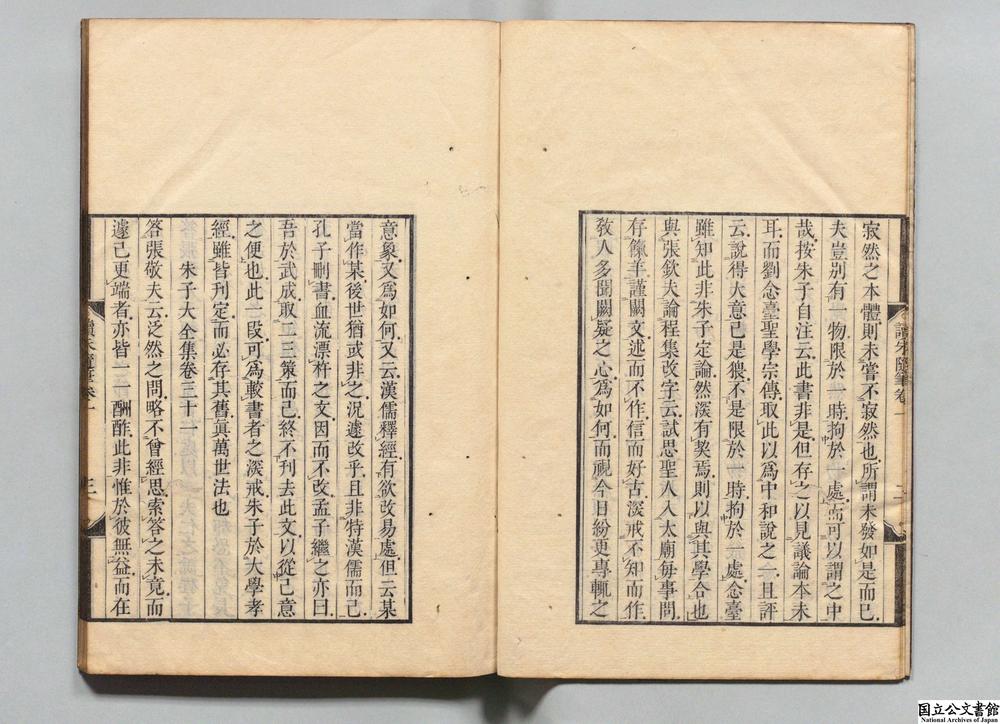 寂然之本體則未嘗不寂然也所謂未發如是而已
夫豈别有一物限於一時拘於一處而可以謂之中
哉按朱子自注云此書非是但存之以見議論本末
耳而劉念臺聖學宗傳取此以爲中和說之一且評
云說得大意已是猥不是限於一時拘於一處念臺
雖知此非朱子定論然深有契焉則以與其學合也
與張欽夫論程集改字云試思聖人入太廟每事問
存餼羊謹闕文述而不作信而好古深戒不知而作
敎人多聞闕疑之心爲如何而視今日紛更專輒之
讀朱隨筆卷一
二
意象又爲如何又云漢儒釋經有欲改易處但云某
當作某後世猶或非之况遽改乎且非特漢儒而已
孔子刪書血流漂杵之文因而不改孟子繼之亦曰
吾於武成取二三策而已終不刋去此文以從己意
之便也此一段可爲較書者之深戒朱子於大學孝
經雖皆刋定而必存其舊眞萬世法也
朱子大全集卷三十一
答張敬夫云泛然之問略不曾經思索答之未竟而
遽已更端者亦皆一一酬酢此非惟於彼無益而在
讀朱隨筆卷一
三
国立公文書館
National Archives of Japan